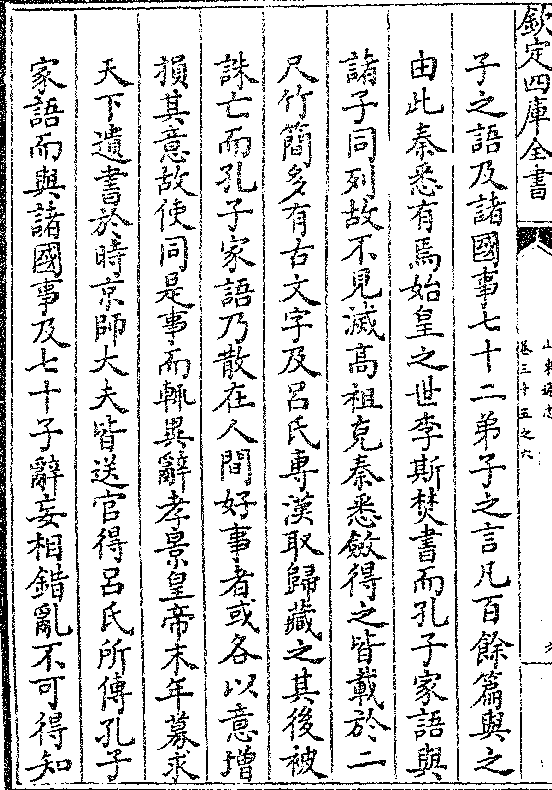 欽定四庫全書
卷三十五之六
子之語及諸國事七十二弟子之言凡百餘篇與之
由此秦悉有焉始皇之世李斯焚書而孔子家語與
諸子同列故不見滅高祖克秦悉斂得之皆載於二
尺竹簡多有古文字及呂氏專漢取歸藏之其後被
誅亡而孔子家語乃散在人間好事者或各以意增
損其意故使同是事而輒異辭孝景皇帝末年募求
天下遺書於時京師大夫皆送官得呂氏所傳孔子
家語而與諸國事及七十子辭妄相錯亂不可得知